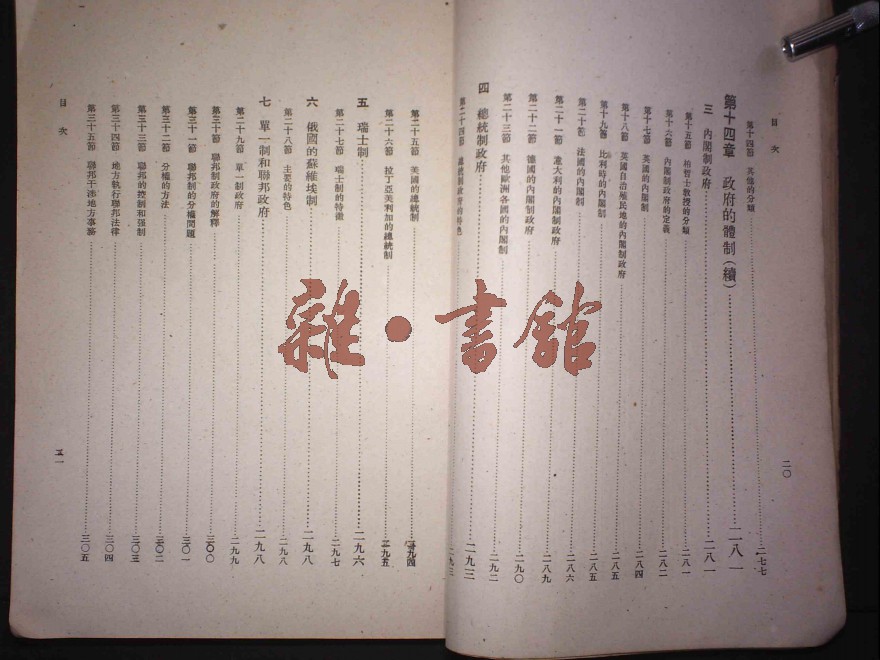 目次
二〇
第十四節 其他的分類……二七七
第十四章 政府的體制(續)……二八一
三 內閣制政府……二八一
第十五節 柏哲士教授的分類……二八一
第十六節 內閣制政府的定義……二八二
第十七節 英國的內閣制……二八四
第十八節 英國自治殖民地的內閣制政府……二八五
第十九節 比利時的內閣制……二八五
第二十節 法國的內閣制……二八六
第二十一節 意大利的內閣制政府……二八九
第二十二節 德國的內閣制政府……二九〇
第二十三節 其他歐洲各國的內閣制……二九二
四 總統制政府……二九三
第二十四節 總統制政府的特色……二九三
第二十五節 美國的總統制……二九四
第二十六節 拉丁亞美利加的總統制……二九五
五 瑞士制……二九六
第二十七節 瑞士制的特徵……二九七
六 俄國的蘇維埃制……二九八
第二十八節 主要的特色……二九八
七 單一制和聯邦政府……二九八
第二十九節 單一制政府……二九九
第三十節 聯邦制政府的解釋……三〇〇
第三十一節 聯邦制的分權問題……三〇一
第三十二節 分權的方法……三〇二
第三十三節 聯邦的控制和强制……三〇三
第三十四節 地方執行聯邦法律……三〇四
第三十五節 聯邦干涉地方事務……三〇五
目次
雜·書館